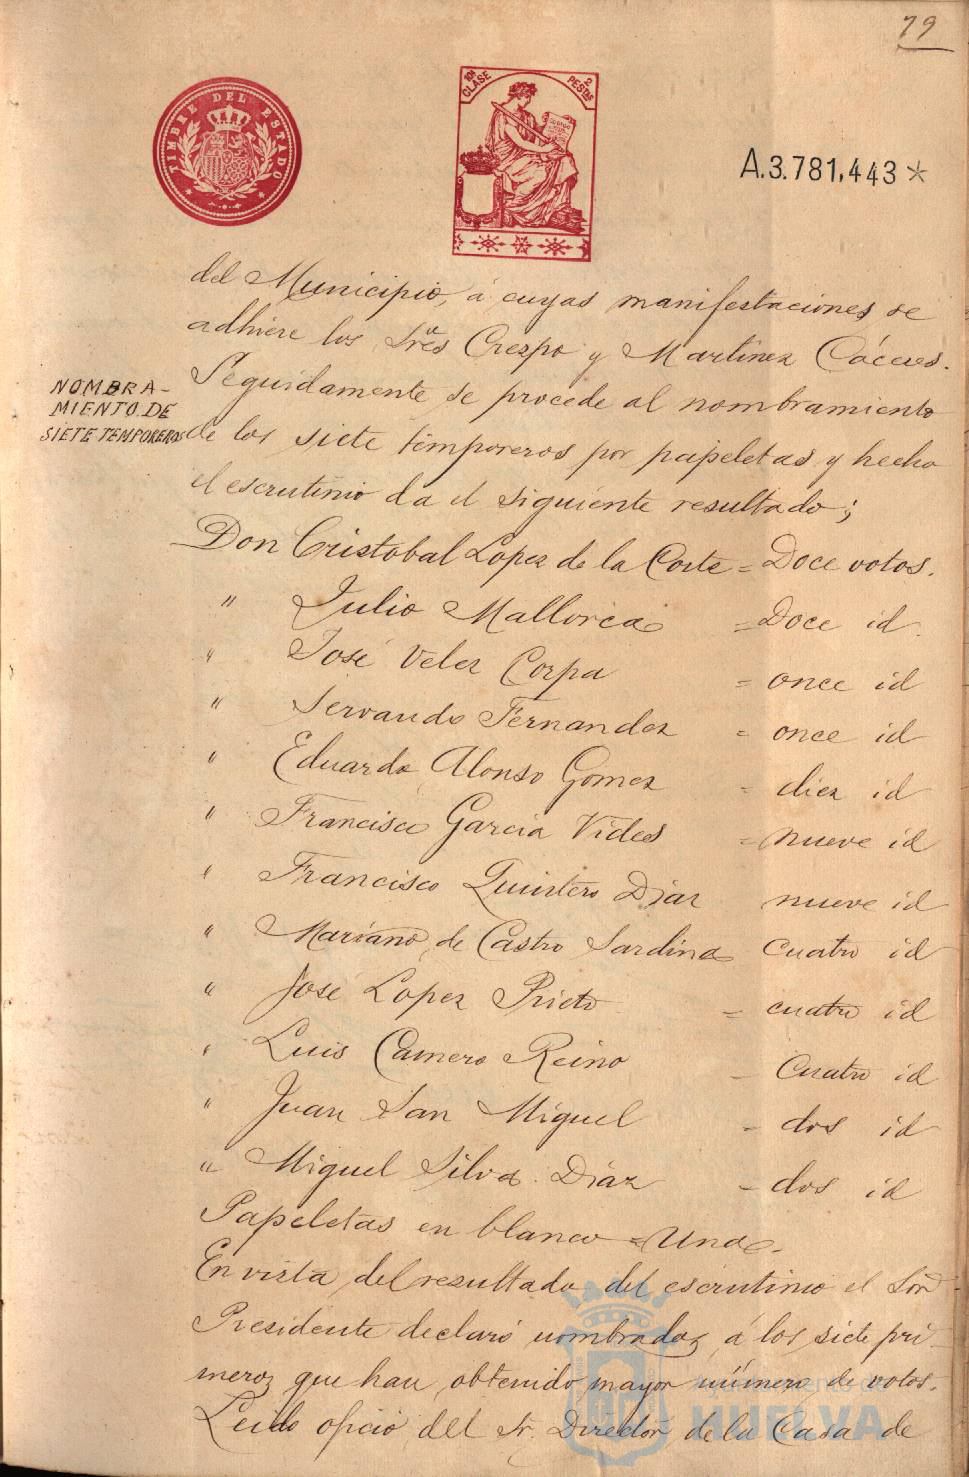 79
TIMBRE DEL ESTADO
10ª CLASE
2 PESETAS
A.3.781,443*
del Municipio, á cuyas manifestaciones se
adhiere los Sres Crespo y Martinez Cáceres.
NOMBRA-
MIENTO DE
SIETE TEMPOREROS
Seguidamente se procede al nombramiento
de los siete temporeros por papeletas y hecho
el escrutinio da el siguiente resultado;
Don Cristobal Lopez de la Corte = Doce votos.
" Julio Mallorca = Doce id.
" José Velez Corpa = once id
" Servando Fernandez = once id
" Eduardo Alonso Gomez = diez id
" Francisco Garcia Vides = nueve id
" Francisco Quintero Diaz nueve id
" Mariano de Castro Sardina cuatro id
" José Lopez Prieto = cuatro id
" Luis Camero Reino = Cuatro id
" Juan San Miguel = dos id
" Miguel Silva Diaz = dos id
Papeletas en blanco = Una.
En vista del resultado del escrutinio el Sor
Presidente declaró nombrados á los siete pri-
meros que han obtenido mayor número de votos.
Leido oficio del Sr. Director de la Casa de
Ayuntamiento de
HUELVA